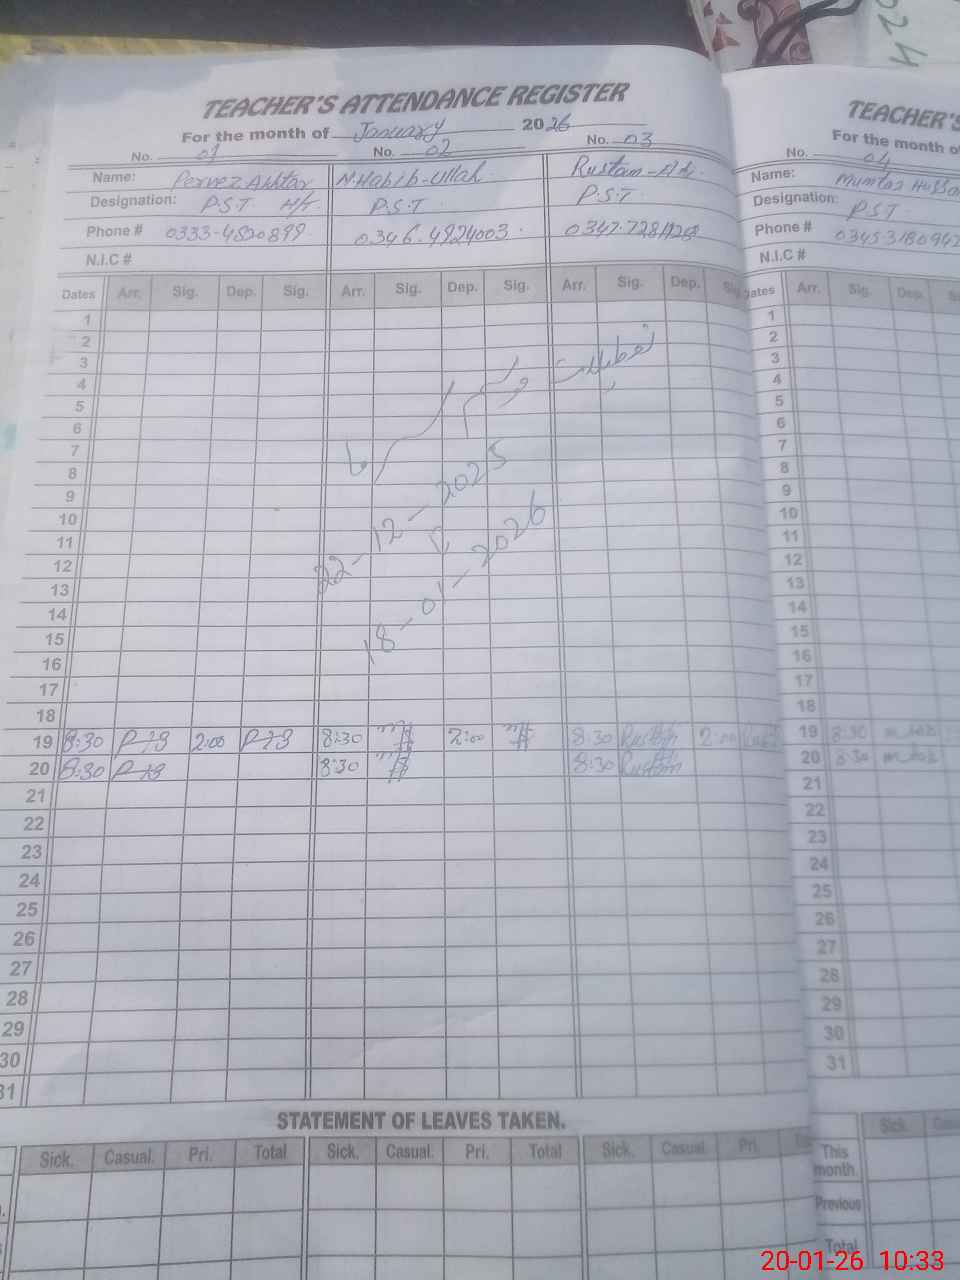 2024
TEACHER'S ATTENDANCE REGISTER
For the month of January 2026
No. 01 No. 02 No. 03
Name: Pervez Akhtar N.Habib-Ullah. Rustam-Ali
Designation: P.S.T H/T. P.S.T P.S.T
Phone # 0333-4820899 0346.4924003.
N.I.C #
Dates Arr. Sig. Dep. Sig. Arr. Sig. Dep. Sig. Arr. Sig. Dep. Sig
1
2
3
4
5
6
7
8
9
10
11
12
13
14
15
16
17
18
تعطیلات موسم سرما
22-12-2025
18-01-2026
19 8:30 2:00 8:30 2:00 8:30 Rustam 2:00
20 8:30 8:30 8:30 Rustam
21
22
23
24
25
26
27
28
29
30
31
STATEMENT OF LEAVES TAKEN.
Sick. Casual. Pri. Total Sick. Casual. Pri. Total Sick. Casual Pri.
TEACHER'S
For the month o
No. 04
Name: Mumtaz Hussa
Designation: PST
Phone # 0345318094
N.I.C #
ates Arr. Sig. Dep. Si
1
2
3
4
5
6
7
8
9
10
11
12
13
14
15
16
17
18
19 8:30
20 8:30
21
22
23
24
25
26
27
28
29
30
31
Sick. Cas
This month.
Previous
Total
20-01-26 10:33